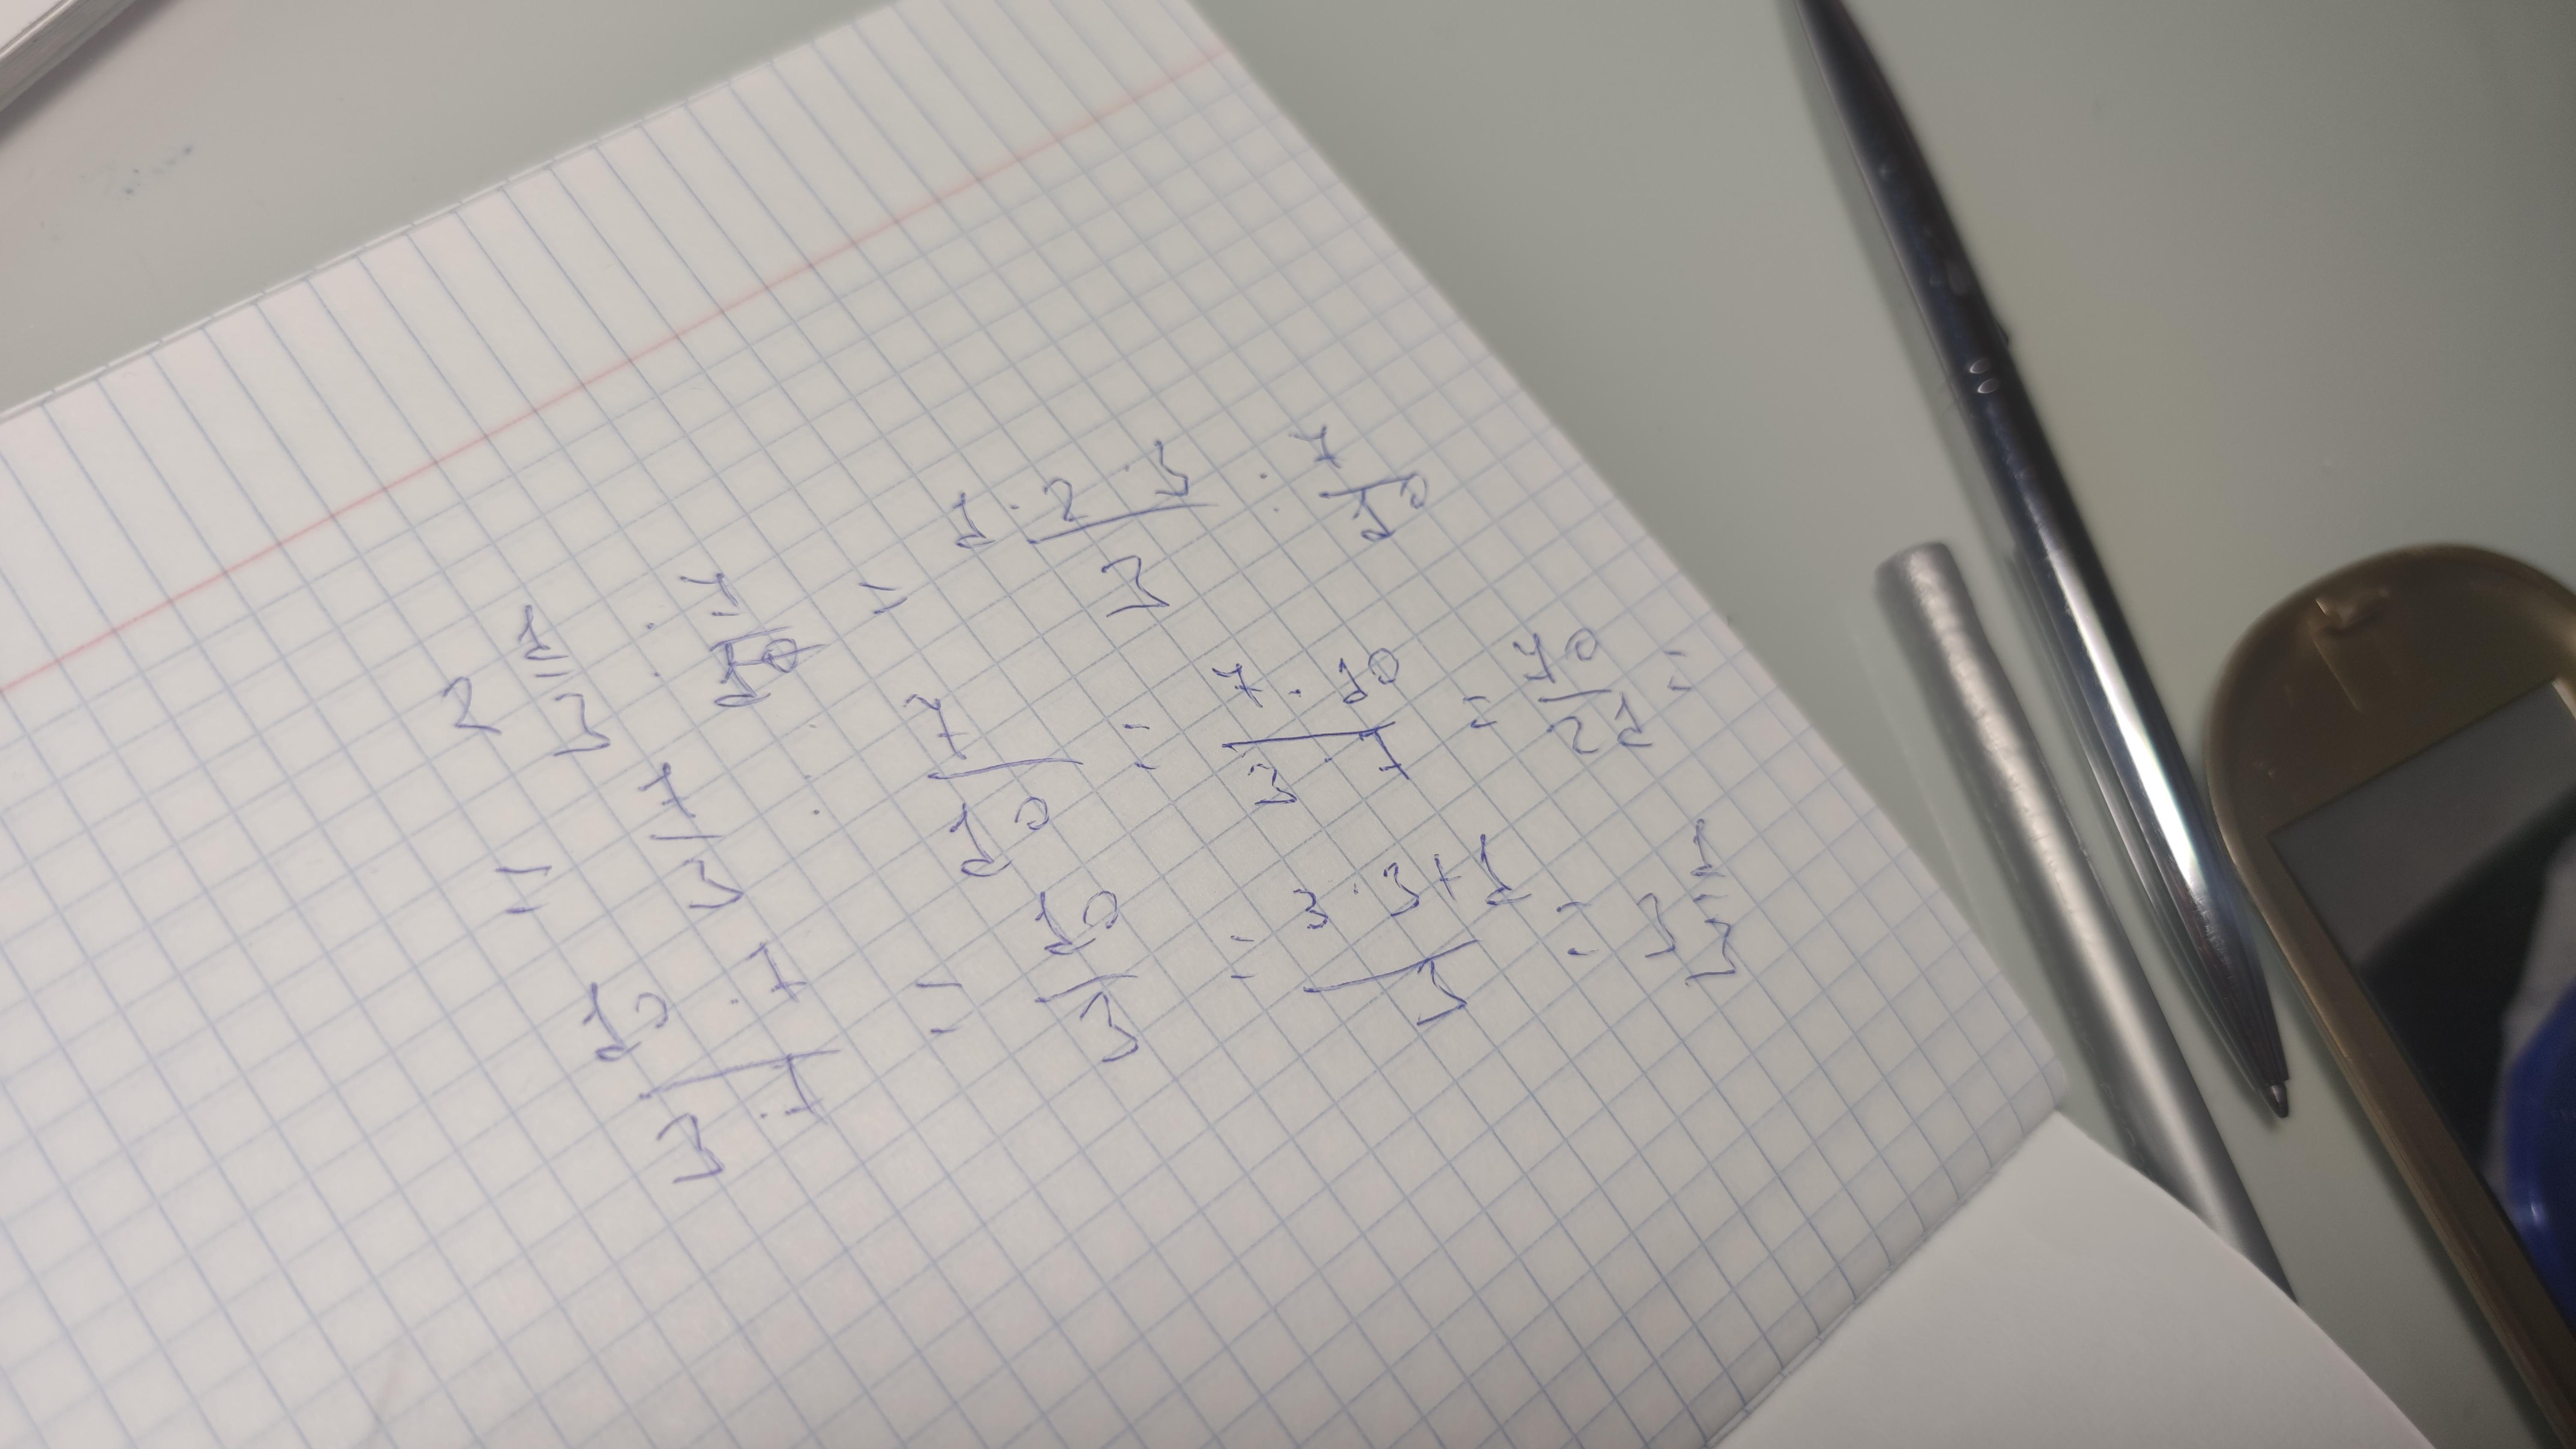 2 1/3 : 7/10 = 1 · 2 · 3/3 : 7/10
= 7/3 : 7/10 = 7 · 10/3 · 7 = 70/21 =
10 · 7/3 · 7 = 10/3 = 3 · 3 + 1/3 = 3 1/3